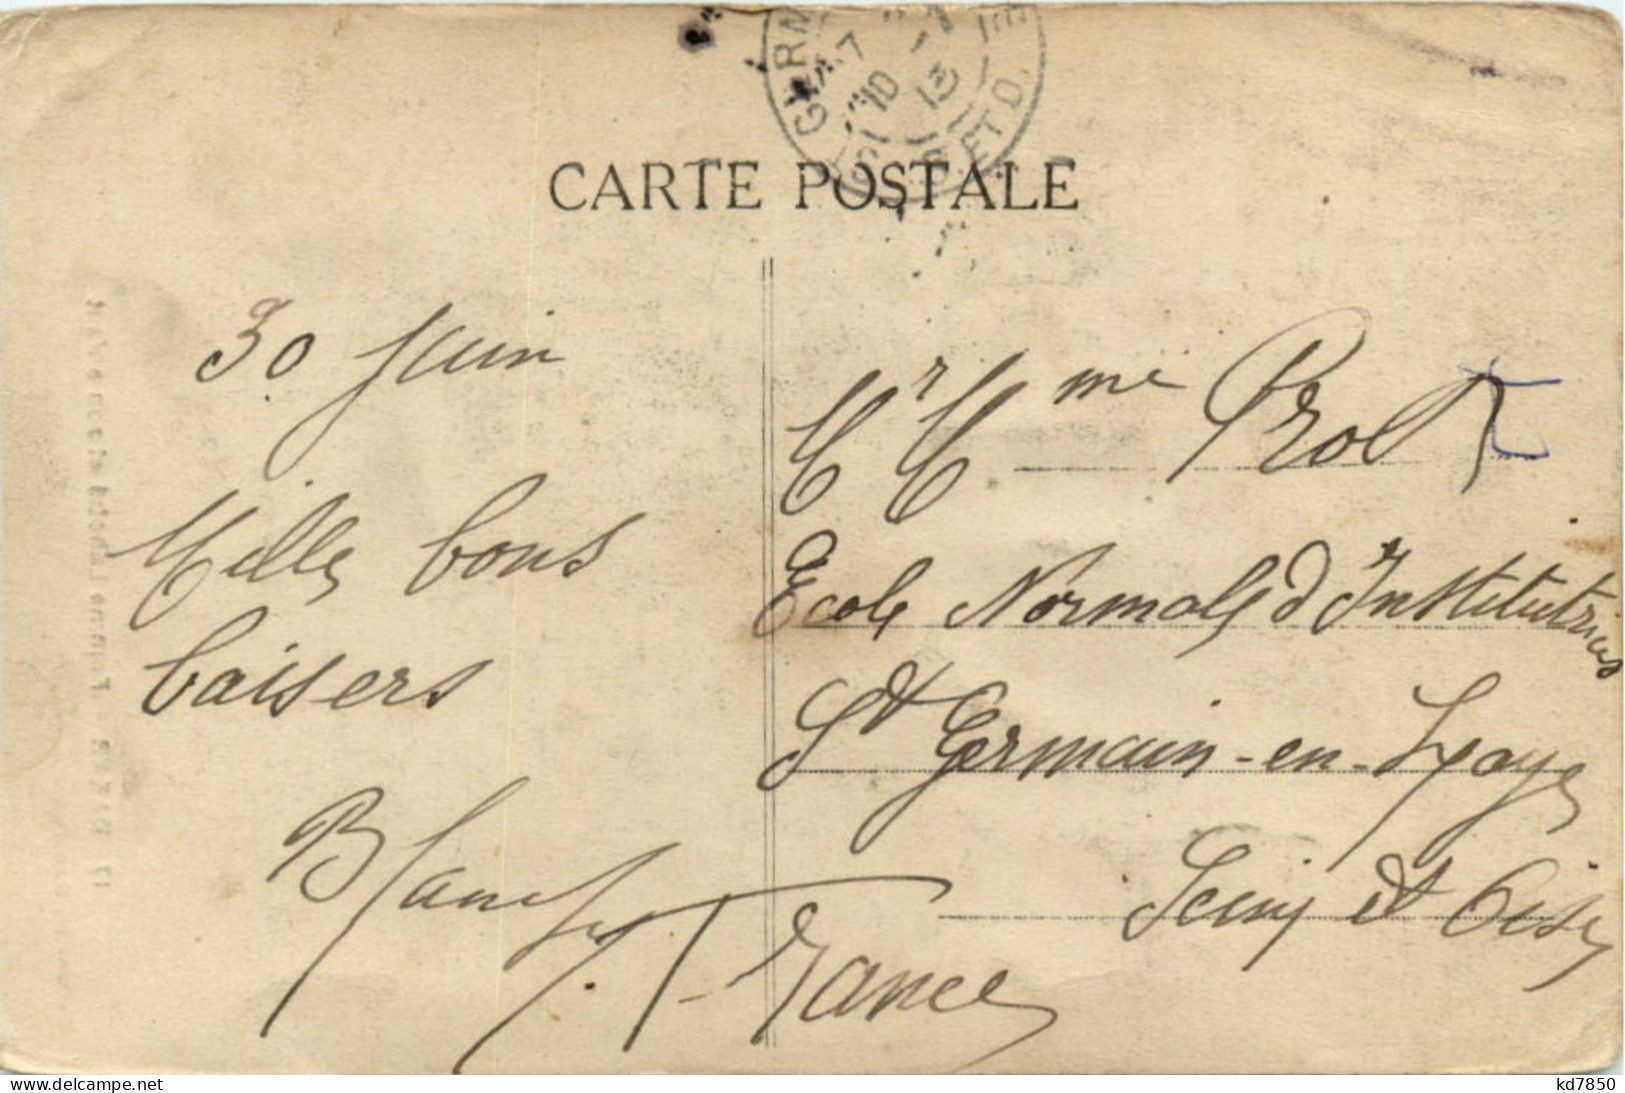 CARTE POSTALE
30 juin
Mille bons
baisers
Blanche
France
Mr Mme Prolt
Ecole Normale d'Institutrices
St Germain-en-Laye
Seine et Oise
kd7850